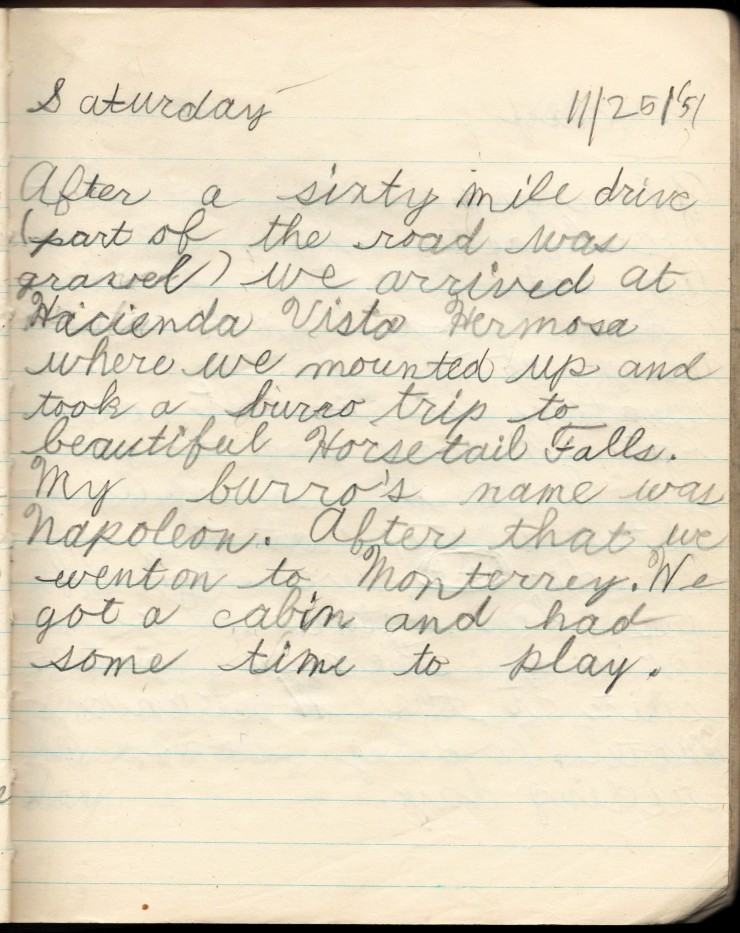 Saturday 11/25/'51
After a sixty mile drive
(part of the road was
gravel) we arrived at
Hacienda Vista Hermosa
where we mounted up and
took a burro trip to
beautiful Horsetail Falls.
My burro's name was
Napoleon. After that we
went on to Monterrey. We
got a cabin and had
some time to play.